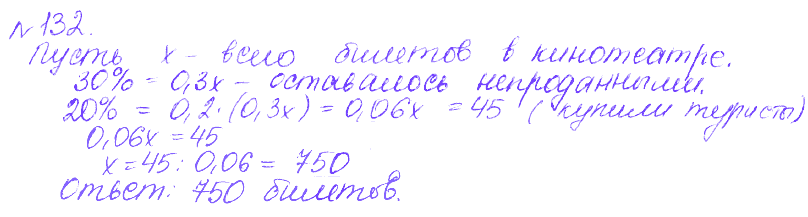 № 132.
Пусть x - всего билетов в кинотеатре.
30% = 0,3x - оставалось непроданными.
20% = 0,2·(0,3x) = 0,06x = 45 ( купили туристы)
0,06x = 45
x = 45 : 0,06 = 750
Ответ: 750 билетов.